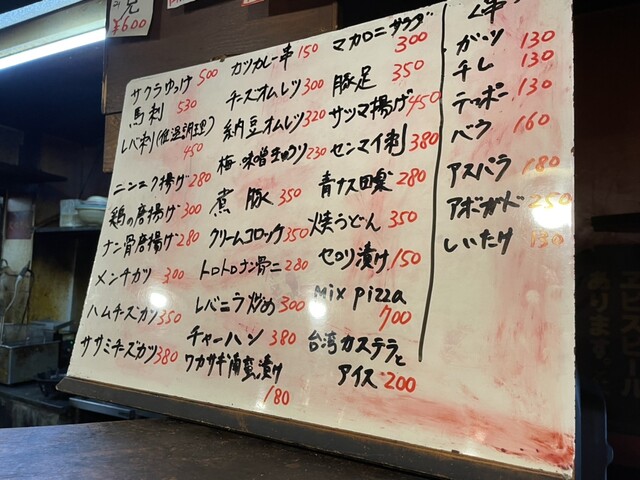 ¥600
サクラゆっけ 500
馬刺 530
レバ刺(低温調理) 450
ニンニク揚げ 280
鶏の唐揚げ 300
ナン骨唐揚げ 280
メンチカツ 300
ハムチーズカツ 350
ササミチーズカツ 380
カツカレー串 150
チーズオムレツ 300
納豆オムレツ 320
梅・味噌きゅうり 230
煮豚 350
クリームコロッケ 350
トロトロナン骨ニ 280
レバニラ炒め 300
チャーハン 380
ワカサギ南蛮漬け 180
マカロニサラダ 300
豚足 350
サツマ揚げ 450
センマイ刺 380
青ナス田楽 280
焼うどん 350
セロリ漬け 150
mix pizza 700
台湾カステラと
アイス 200
串
ガーツ 130
チレ 130
テッポー 130
バラ 160
アスパラ 180
アボガド 250
しいたけ 150